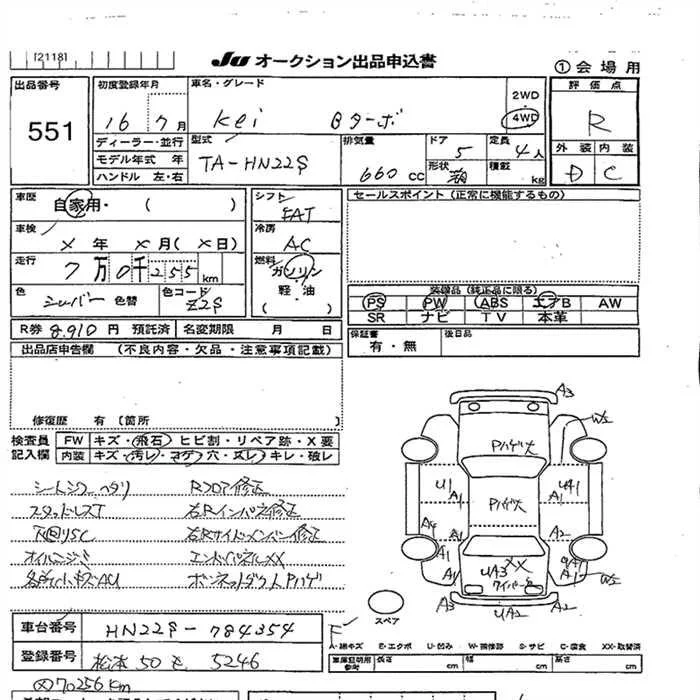 [2118]
JU オークション出品申込書
① 会場用
出品番号
551
初度登録年月
16 7月
車名・グレード
Kei Bターボ
2WD
4WD
評価点
R
ディーラー・並行
モデル年式 年
ハンドル 左・右
型式
TA-HN22S
排気量
660 cc
ドア
5
形状
定員
4人
積載
kg
外装 内装
D C
車歴
自家用・( )
シフト
FAT
セールスポイント (正常に機能するもの)
車検
× 年 × 月 (× 日)
冷房
AC
走行
7万0千255 km
燃料
ガソリン
軽・油
( )
色
シルバー 色替
色コード
Z2S
装備品 (純正品に限る)
PS PW ABS エアB AW
SR ナビ TV 本革
R券 8,910 円 預託済 名変期限 月 日
保証書
有・無
後日品
出品店申告欄 (不良内容・欠品・注意事項記載)
修復歴 有 (箇所
検査員
記入欄
FW キズ・飛石・ヒビ割・リペア跡・X要
内装 キズ・汚レ・コゲ穴・スレ・キレ・破レ
シートシワ ヘタリ Rフロア修正
スタッドレスT 右Rインパネ修正
下回りSC 右Rサイドメンバー修正
オイルニジミ エンドパネルXX
各所小キズAU ボンネットダクトPハゲ
A3
W2
Pハゲ大
U1
A1
Pハゲ大
UA1
A1
A4
A1
A2
A1
A1
UA3
XX
ワイパーキズ
A1
W2
A3
UA2
A2
スペア
A-線キズ E-エクボ U-凹み W-補修跡 S-サビ C-腐食 XX-取替済
車台番号
HN22S-784354
登録番号
松本 50 5246
車庫証明用
参考
長さ cm
幅 cm
高さ cm
70256km